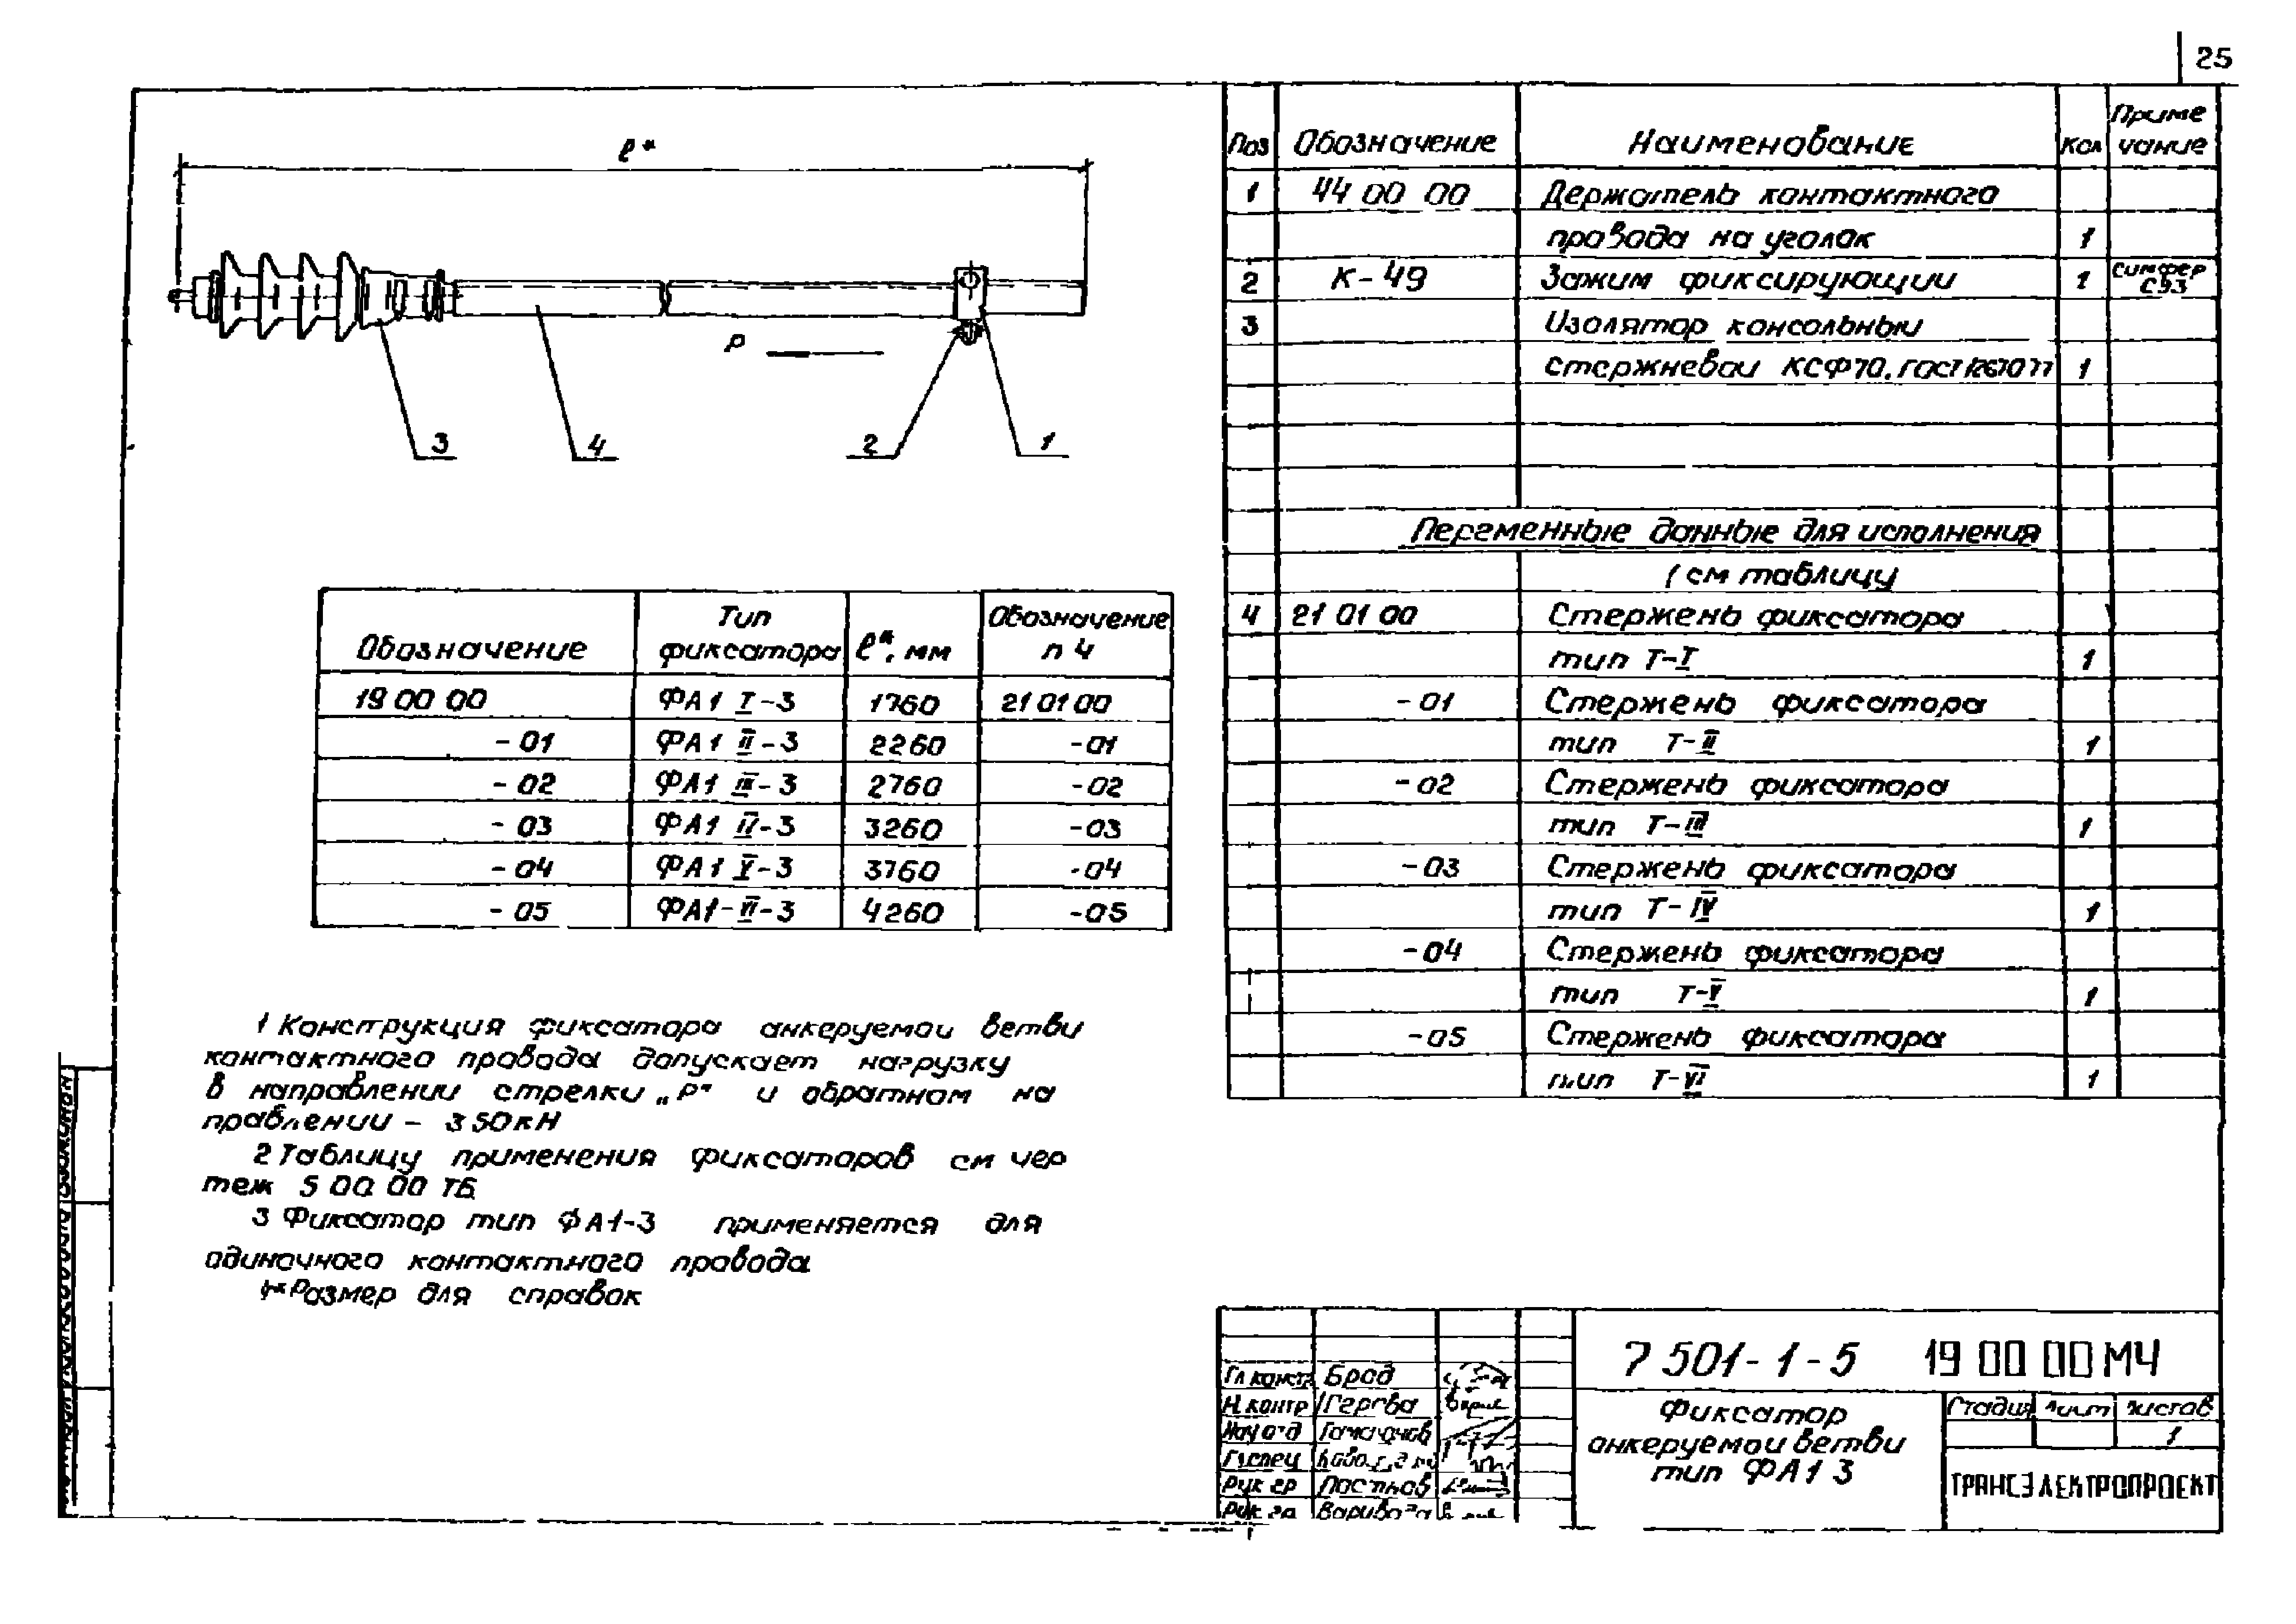 25
ℓ*
P
3
4
2
1
Обозначение | Тип фиксатора | ℓ*, мм | Обозначение п 4
19 00 00 | ФА1 I-3 | 1760 | 21 01 00
-01 | ФА1 II-3 | 2260 | -01
-02 | ФА1 III-3 | 2760 | -02
-03 | ФА1 IV-3 | 3260 | -03
-04 | ФА1 V-3 | 3760 | -04
-05 | ФА1-VI-3 | 4260 | -05
1 Конструкция фиксатора анкеруемои ветви
контактного провода допускает нагрузку
в направлении стрелки „Р" и обратном на
правлении - 350кН
2 Таблицу применения фиксаторов см чер
теж 5 00 00 ТБ
3 Фиксатор тип ФА1-3 применяется для
одиночного контактного провода
4* Размер для справок
Поз | Обозначение | Наименование | Кол | Приме чание
1 | 44 00 00 | Держатель контактного
провода на уголок | 1
2 | К-49 | Зажим фиксирующии | 1
3 | Изолятор консольныи
стержневои КСФ70, ГОСТ12670 77 | 1
Переменные данные для исполнения
(см таблицу
4 | 21 01 00 | Стержень фиксатора
тип Т-I | 1
-01 | Стержень фиксатора
тип Т-II | 1
-02 | Стержень фиксатора
тип Т-III | 1
-03 | Стержень фиксатора
тип Т-IV | 1
-04 | Стержень фиксатора
тип Т-V | 1
-05 | Стержень фиксатора
тип Т-VI | 1
Гл констр Брод
Н. контр
Нач отд
Гл спец
Рук гр
Рук гр
7 501-1-5 19 00 00 МЧ
Фиксатор
анкеруемои ветви
тип ФА1 3
Стадия Лист Листов
1
ТРАНСЭЛЕКТРОПРОЕКТ